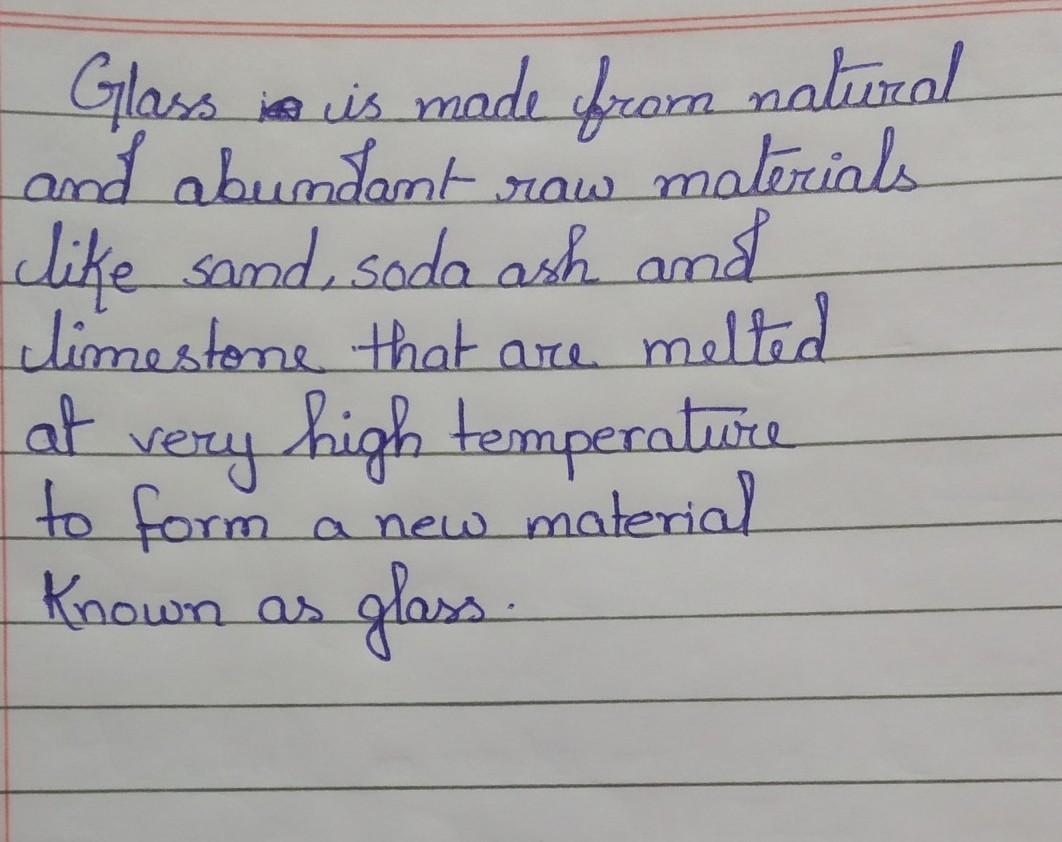 Glass is made from natural
and abundant raw materials
like sand, soda ash and
limestone that are melted
at very high temperature
to form a new material
Known as glass.